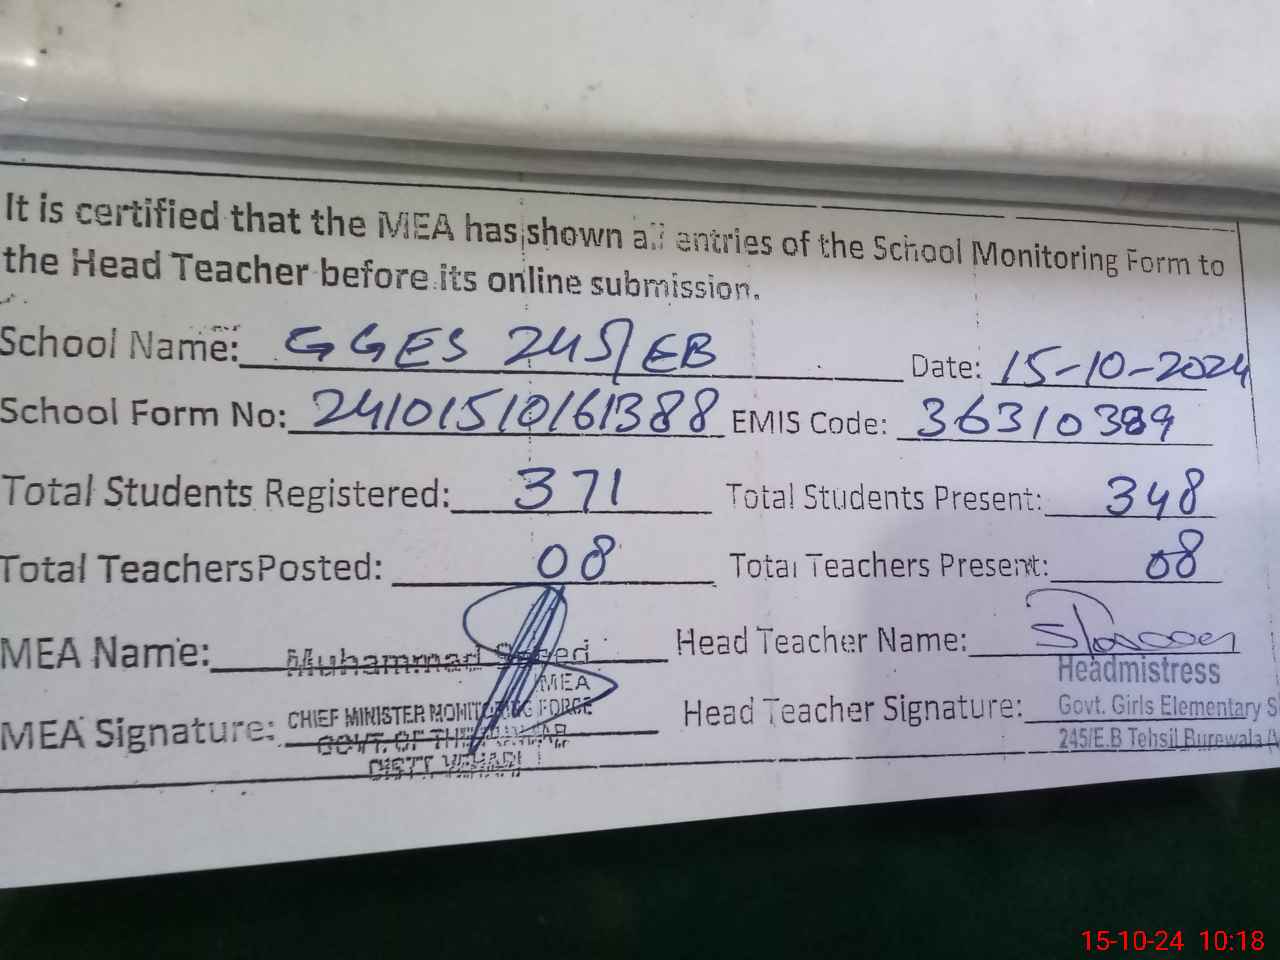 It is certified that the MEA has shown all entries of the School Monitoring Form to
the Head Teacher before its online submission.
School Name: GGES 245/EB Date: 15-10-2024
School Form No: 24101510161388 EMIS Code: 36310389
Total Students Registered: 371 Total Students Present: 348
Total Teachers Posted: 08 Total Teachers Present: 08
MEA Name: Muhammad Saeed Head Teacher Name:
MEA Headmistress
MEA Signature: CHIEF MINISTER MONITORING FORCE Head Teacher Signature: Govt. Girls Elementary S
GOVT. OF THE PUNJAB 245/E.B Tehsil Burewala
DISTT. VEHARI
15-10-24 10:18